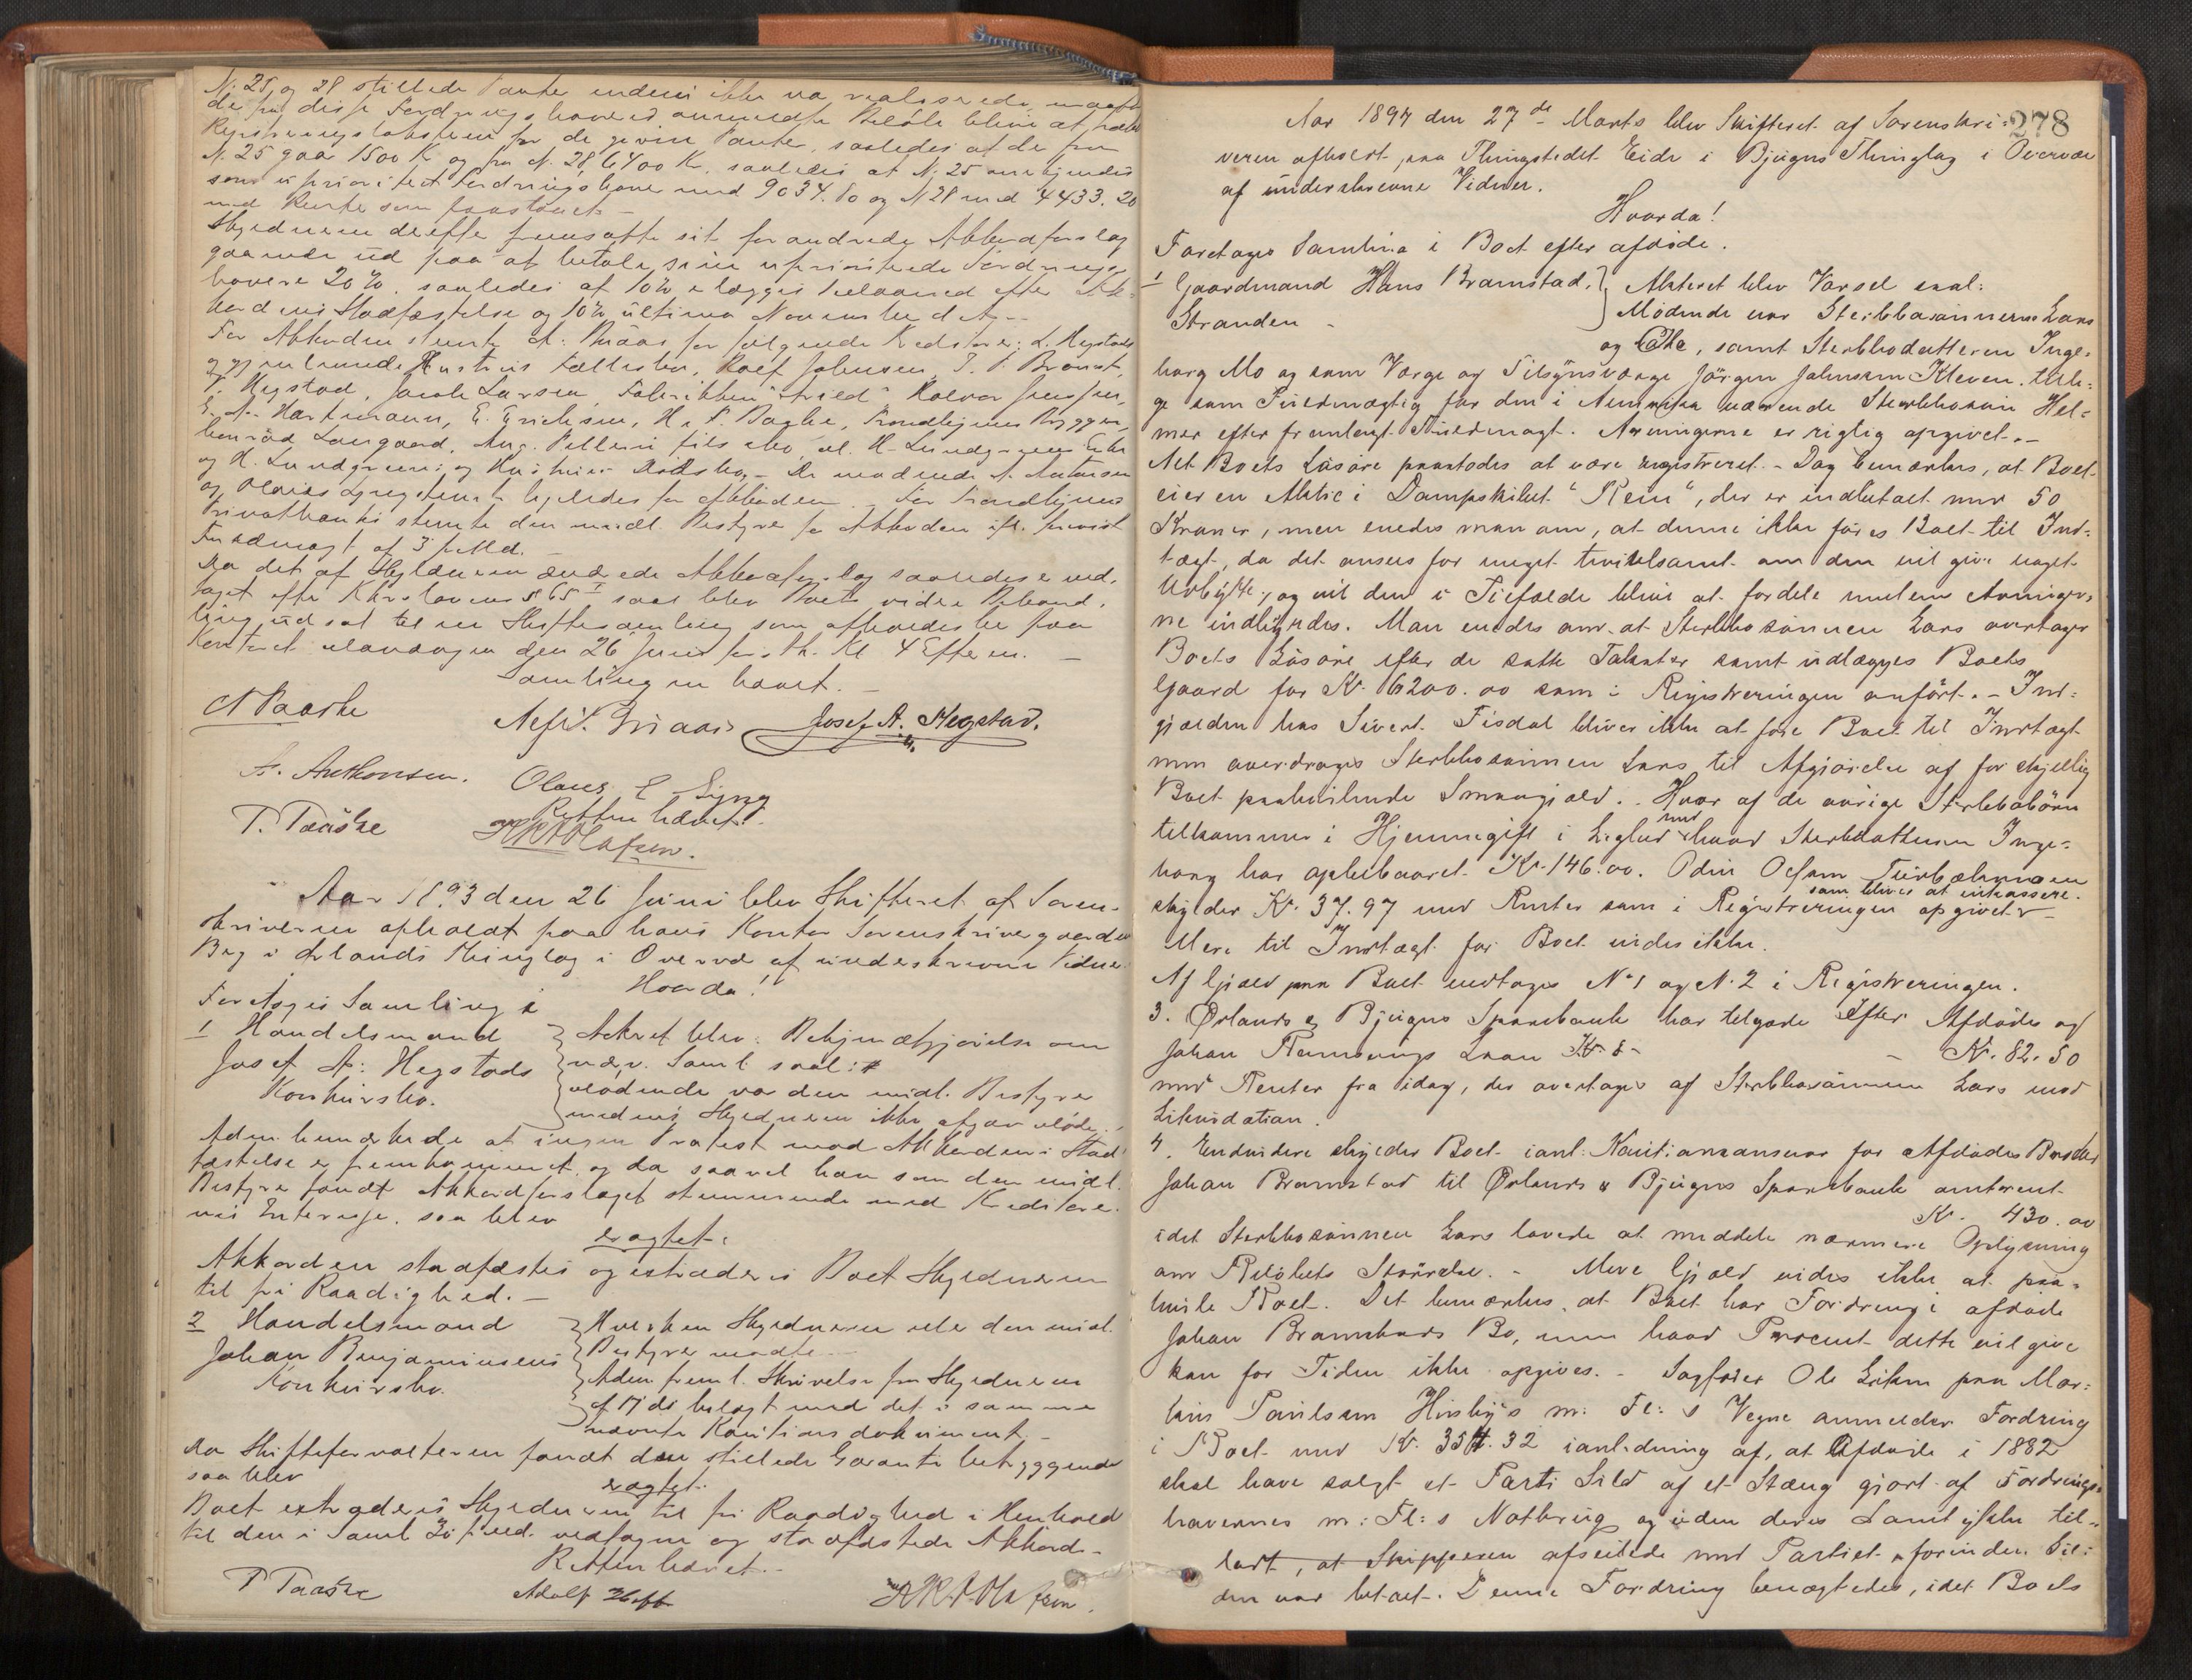 N. 25 og 28 stillede Panter endnu ikke var realiserede, maatte
de fra disse Fordringshavere anmeldte Beløb blive at
Registreringstaksterne for de givne Panter, saaledes at de fra
N. 25 gaar 1500 K og fra N. 28, 6400 K. saaledes at N. 25
som uprioritert Fordringshaver med 9034. 80 og N 28 med 4433. 20
med Rente som paastaaet. –
Skyldneren derefter fremsatte sit forandrede Akkordforslag
gaaende ud paa at betale sine uprioriterede Fordrings-
havere 20%. saaledes at 10% erlægges 
Stadfæstelse og 10% ultimo November d. A. –
For Akkorden stemte A: Braas for følgende Kreditorer: L. Hegstad
 Rolf Johnsen, 
 Hegstad, Jacob Larsen, Fabrikken Trild, Halvor
E. A. Hartmann, E. Erichsen, H. P. Bagke, Trondhjems Bryggeri,
Konrad Langaard, Aug. Pellerin fils & co, 
og H. Lundgreen; og De mødende A. Antonsen
og for Akkorden. For Trondhjems
Privatbank stemte den midl. Bestyrer for Akkorden
Fuldmagt af 3 
Da det af Skyldneren Akkordforslag saaledes er ved-
taget efter Kkslovens § 65 saa blev Boets videre Behand-
ling udsat til en Skiftesamling som afholdes her paa
Kontoret Mandagen den 26 Juni Kl 4 Efterm. –
Samlingen hævet. –
N Paaske Braas Josef A. Hegstad.
A. Anthonsen. Olaus
Retten hævet.
P. Paaske Olafsen.
Aar 1893 den 26 Juni blev Skifteret af Soren-
skriveren afholdt paa hans Kontor Sorenskrivergaarden
Beg i Ørlands Thinglag i Overvær af underskrevne Vidner.
Hvorda!
Foretoges Samling i
1 Handelsmand } Akteret blev: Bekjendtgjørelse om
Josef A: Hegstads } nærv. Saml. saal:
Konkursbo. } Mødende var den midl. Bestyrer
medens Skyldneren ikke afgav Møde. –
Adm. bemærkede at ingen Protest mod Akkordens Stad-
fæstelse er fremkommet, og da saavel han som den midl.
Bestyrer fandt Akkordforslaget stemmende med Kreditorer-
nes Interesse, saa blev
eragtet:
Akkorden stadfæstes og extraderes Boet Skyldneren
til fri Raadighed. –
2 Handelsmand } Hverken Skyldneren eller den midl.
Johan Benjaminsens } Bestyrer mødte –
Konkursbo. } Adm. freml. Skrivelse fra Skyldneren
af 17 ds belagt med det i samme
nævnte Kautionsdokument. –
Da Skifteforvalteren fandt den stillede Garanti betryggende
saa blev
eragtet:
Boet extraderes Skyldneren til fri Raadighed i Henhold
til den i Saml 30 f. Md. vedtagne og stadfæstede Akkord. –
Retten hævet. –
P Paaske Adolf Hoff Olafsen.
278
Aar 1894 den 27de Marts blev Skifteret af Sorenskri-
veren afholdt paa Thingstedet Eide i Bjugns Thinglag i Overvær
af underskrevne Vidner.
Hvorda!
Foretages Samling i Boet efter afdøde.
1 Gaardmand Hans Bramstad, } Akteret blev Varsel saal:
Stranden – } Mødende var Sterbbosønnerne Lars
og Ole, samt Sterbbodatteren Inge-
borg Mo og som Værge og Tilsynsværge Jørgen Johnsen Kleven, tilli-
ge som Fuldmægtig for den i Amerika værende Sterbbosøn Hel-
mer efter fremlagt Fuldmagt. Arvingerne er rigtig opgivet. –
Alt Boets Løsøre paastodes at være registreret. – Dog bemærkes, at Boet
eier en Aktie i Dampskibet "Rein", der er indbetalt med 50
Kroner, men enedes man om, at denne ikke føres Boet til Ind-
tægt, da det ansees for meget tvivlsomt om den vil give noget
Udbytte, og vil den i Tilfælde blive at fordele mellem Arvinger-
ne indbyrdes. Man enedes om at Sterbbosønnen Lars overtager
Boets Løsøre efter de satte Takster samt udlægges Boets
Gaard for Kr. 6200. 00 som i Registreringen anført. – Ind-
gjælden hos Sivert Fisdal bliver ikke at føre Boet til Indtægt
men overdrages Sterbbosønnen Lars til Afgjørelse af forskjellig
Boet paahvilende Smaagjæld. . Hver af de øvrige Sterbbobørn
tilkommer i Hjemmegift i Lighed med hvad Sterbdatteren Inge-
borg har oppebaaret Kr. 146. 00. Odin Olsen
skylder Kr. 37. 97 med Renter som i Registreringen opgivet som bliver at inkassere.
Mere til Indtægt for Boet vides ikke.
Af Gjæld paa Boet vedtages N. 1 og N. 2 i Registreringen.
3. Ørlands og Bjugns Sparebank har tilgode efter Afdøde og
Johan Laan – Kr. 82. 50
med Renter fra idag, der overtages af Sterbbosønnen Lars mod
Likvidation.
4. Endvidere skylder Boet ianl: Kautionsansvar for Afdødes Broder
Johan Bramstad til Ørlands & Bjugns Sparebank omtrent
Kr. 430. 00
idet Sterbbosønnen Lars lovede at meddele nærmere Oplysning
om Beløbets Størrelse. – Mere Gjæld vides ikke at paa-
hvile Boet. Det bemærkes, at Boet har Fordring i afdøde
Johan Bramstads Bo, men hvad Procent dette vil give
kan for Tiden ikke opgives. – Sagfører Ole Eriksen paa Mar-
tin Paulsen Husby's m: Fl: s Vegne anmelder Fordring
i Boet med Kr. 354. 32 ianledning af, at Afdøde i 1882
skal have solgt et Parti Sild af et Stæng gjort af Fordrings-
havernes m: Fl: s Notbrug og uden deres Samtykke til-
ladt, at Skipperen afseilede med Partiet, forinden Sil-
den var betalt. Denne Fordring benægtedes, idet Boets